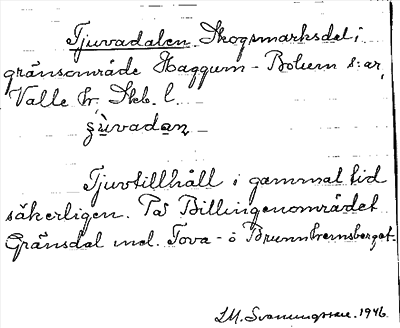 Tjuvadalen. Skogsmarksdel i
gränsområde Häggum - Bolum s:ar,
Valle hr, Skb. l.
Tjuvtillhåll i gammal tid
säkerligen. På Billingenområdet
Gränsdal mel. Tova- o Brunnhemsberget.
LM. Svenungsson. 1946.